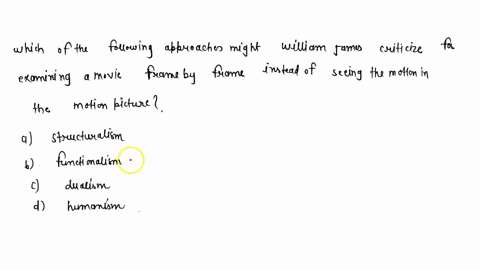 which of the following approaches might william James criticize for
examining a movie frame by frame instead of seeing the motion in
the motion picture?
a) structuralism
b) functionalism
c) dualism
d) humanism